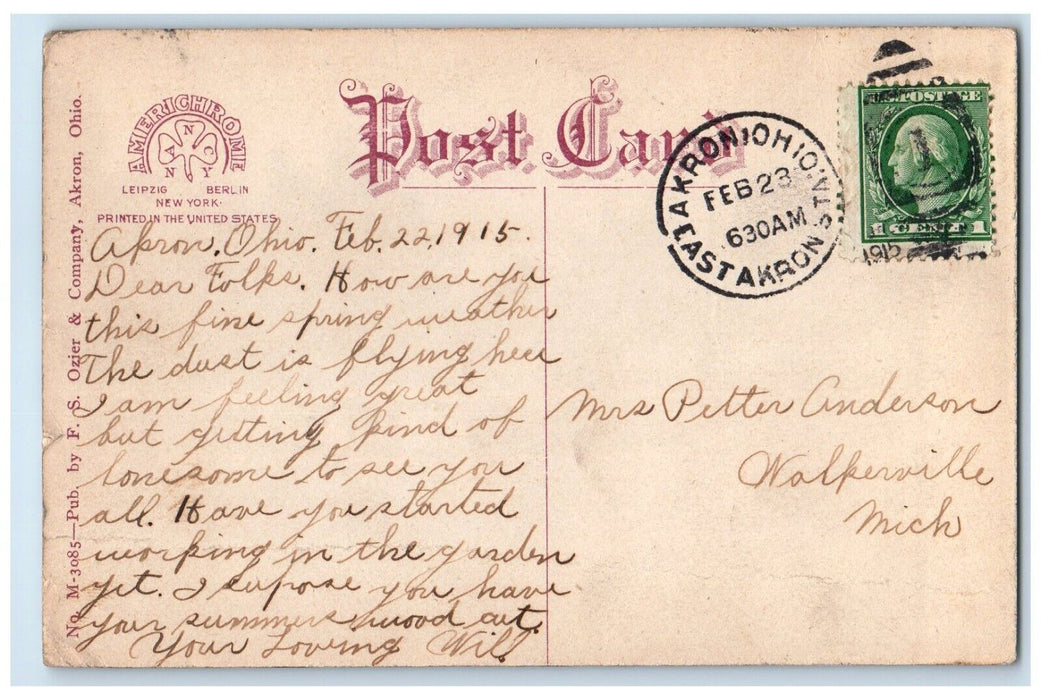 AMERICHROME
A N C
N Y
LEIPZIG BERLIN
NEW YORK
PRINTED IN THE UNITED STATES
Post Card
AKRON, OHIO.
FEB 23
630AM
EAST AKRON STA.
1915
U.S. POSTAGE
1 CENT 1
No. M-3085—Pub. by F. S. Ozier & Company, Akron, Ohio.
Akron, Ohio. Feb. 22, 1915.
Dear Folks. How are you
this fine spring weather
The dust is flying heer
I am feeling great
but getting kind of
lonesome to see you
all. Have you started
working in the garden
yet. I supose you have
your summers wood cut.
Your Loving Will
Mrs Petter Anderson
Walkerville
Mich